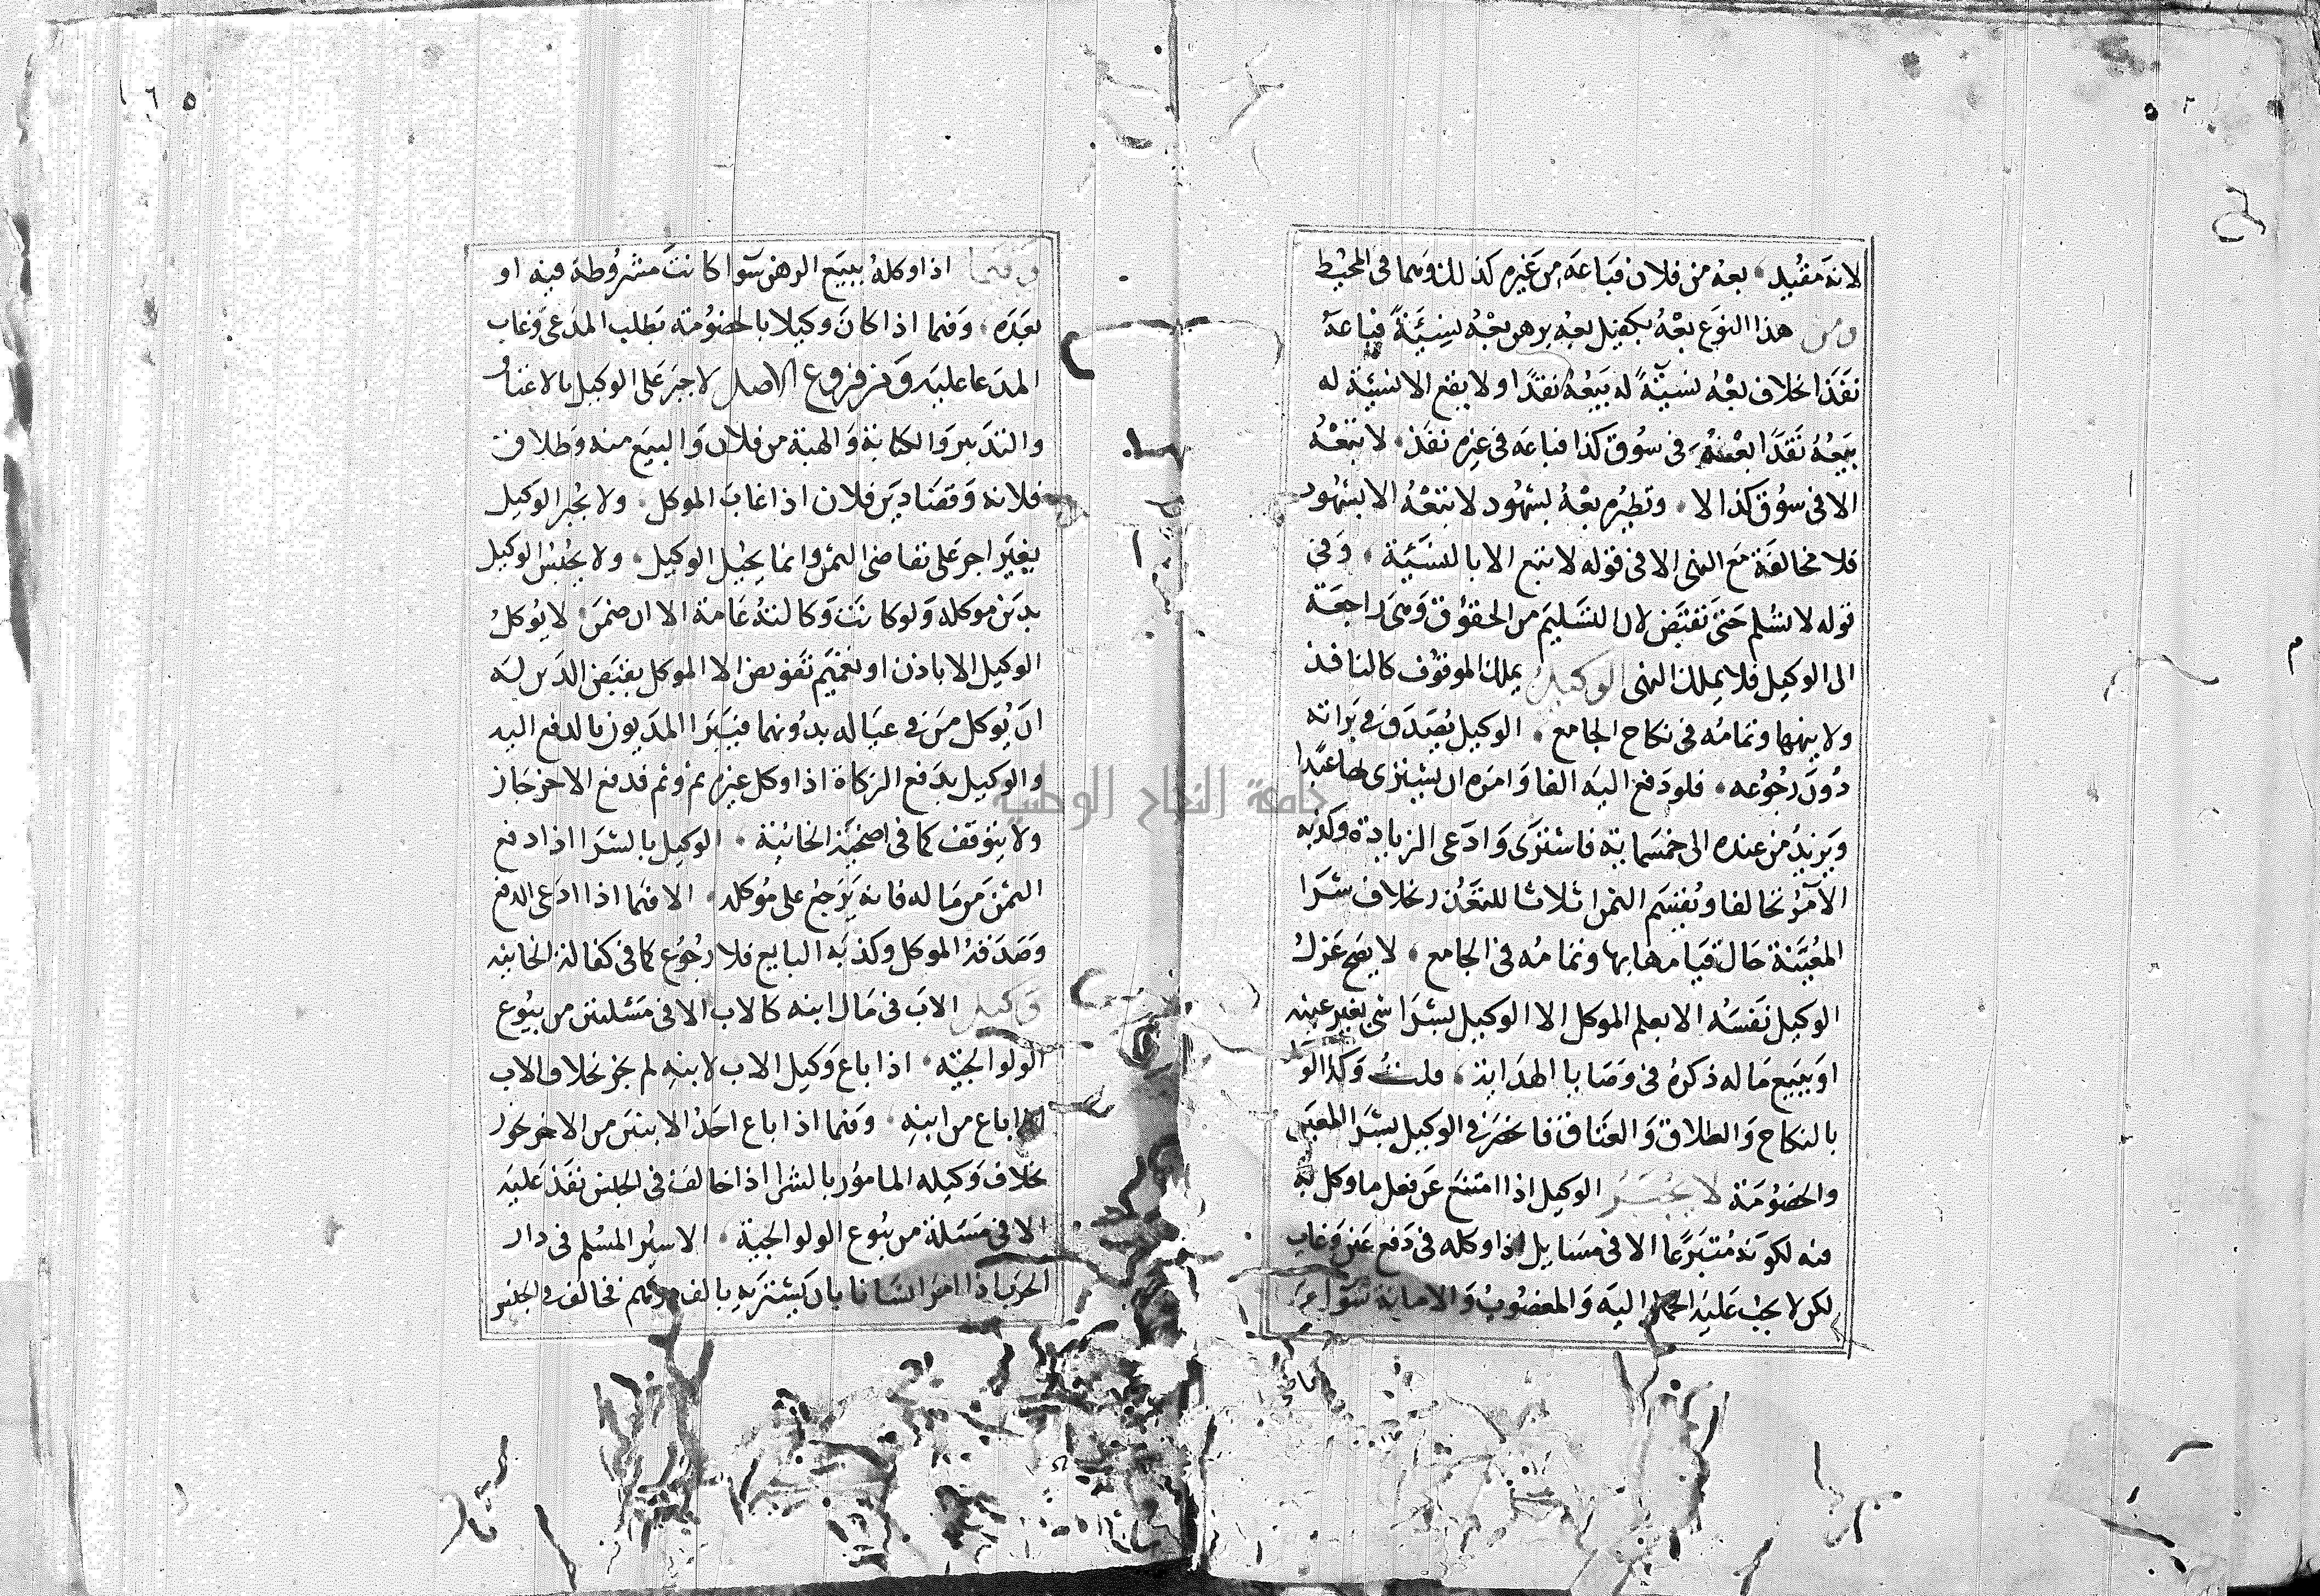 لانه مقيد، بعه من فلان فباعه من غيره كذلك وهما فى المحيط
ومن هذا النوع بعه بكفيل بعه برهن بعه بنسيئة فباعه
نقدا بخلاف بعه نسيئة له بيعه نقدا ولا يبع الا نسيئة له
بيعه نقدا بعه فى سوق كذا فباعه فى غيره نفذ، لا تبعه
الا فى سوق كذا لا، ونظيره بعه بشهود لا تبعه الا بشهود
فلا مخالفة مع النهى الا فى قوله لا تبع الا بالنسيئة، وفى
قوله لا تسلم حتى تقبض لان التسليم من الحقوق وهى راجعة
الى الوكيل فلا يملك النهى الوكيل يملك الموقوف كالنافذ
ولا ينهيها وتمامه فى نكاح الجامع، الوكيل يصدق فى براته
دون رجوعه، فلو دفع اليه الفا وامره ان يشترى بها عبدا
ويزيد من عنده الى خمسماية فاشترى وادعى الزيادة وكذبه
الآمر تحالفا ويقسم الثمن اثلاثا للتعذر بخلاف شرا
المعينة حال قيامها بها وتمامه فى الجامع، لا يصح عزل
الوكيل نفسه الا بعلم الموكل الا الوكيل بشرا شى بغير عينه
او ببيع ماله ذكره فى وصايا الهداية، قلت وكذا الو
بالنكاح والطلاق والعتاق فانحصر فى الوكيل بشرا المعين
والخصومة لا يجبر الوكيل اذا امتنع عن فعل ما وكل به
فيه لكونه متبرعا الا فى مسايل اذا وكله فى دفع عين وغاب
لكن لا يجب عليه الحمل اليه والمغصوب والامانة سوا
وفيما اذا وكله ببيع الرهن سوا كانت مشروطة فيه او
بعده، وفيما اذا كان وكيلا بالخصومة بطلب المدعى وغاب
المدعا عليه ومن فروع الاصل لا جبر على الوكيل بالاعتاق
والتدبير والكتابة والهبة من فلان والبيع منه وطلاق
فلانه وقضا دين فلان اذا غاب الموكل، ولا يجبر الوكيل
بغير اجر على تقاضى الثمن وانما يحيل الوكيل، ولا يحبس الوكيل
بدين موكله ولو كانت وكالته عامة الا ان ضمن، لا يوكل
الوكيل الا باذن او تعميم تفويض الا الموكل بقبض الدين له
ان يوكل من فى عياله بدونهما فيبرا المديون بالدفع اليه
والوكيل بدفع الزكاة اذا وكل غيره ثم وثم فدفع الاخر جاز
ولا يتوقف كما فى اضحية الخانية، الوكيل بالشرا اذا دفع
الثمن من ماله فانه يرجع على موكله، الا فيما اذا ادعى الدفع
وصدقه الموكل وكذبه البايع فلا رجوع كما فى كفالة الخانيه
وكيل الاب فى مال ابنه كالاب الا فى مسئلتين من بيوع
الولوالجيه، اذا باع وكيل الاب لابنه لم يجز بخلاف الاب
اذا باع من ابنه، وفيما اذا باع احد الابنين من الاخر يجوز
بخلاف وكيله المامور بالشرا اذا خالف فى الجنس نفذ عليه
الا فى مسئلة من بيوع الولوالجية، الاسير المسلم فى دار
الحرب اذا امر انسانا بان يشتريه بالف درهم فخالف فى الجنس
١٦٥
جامعة النجاح الوطنية